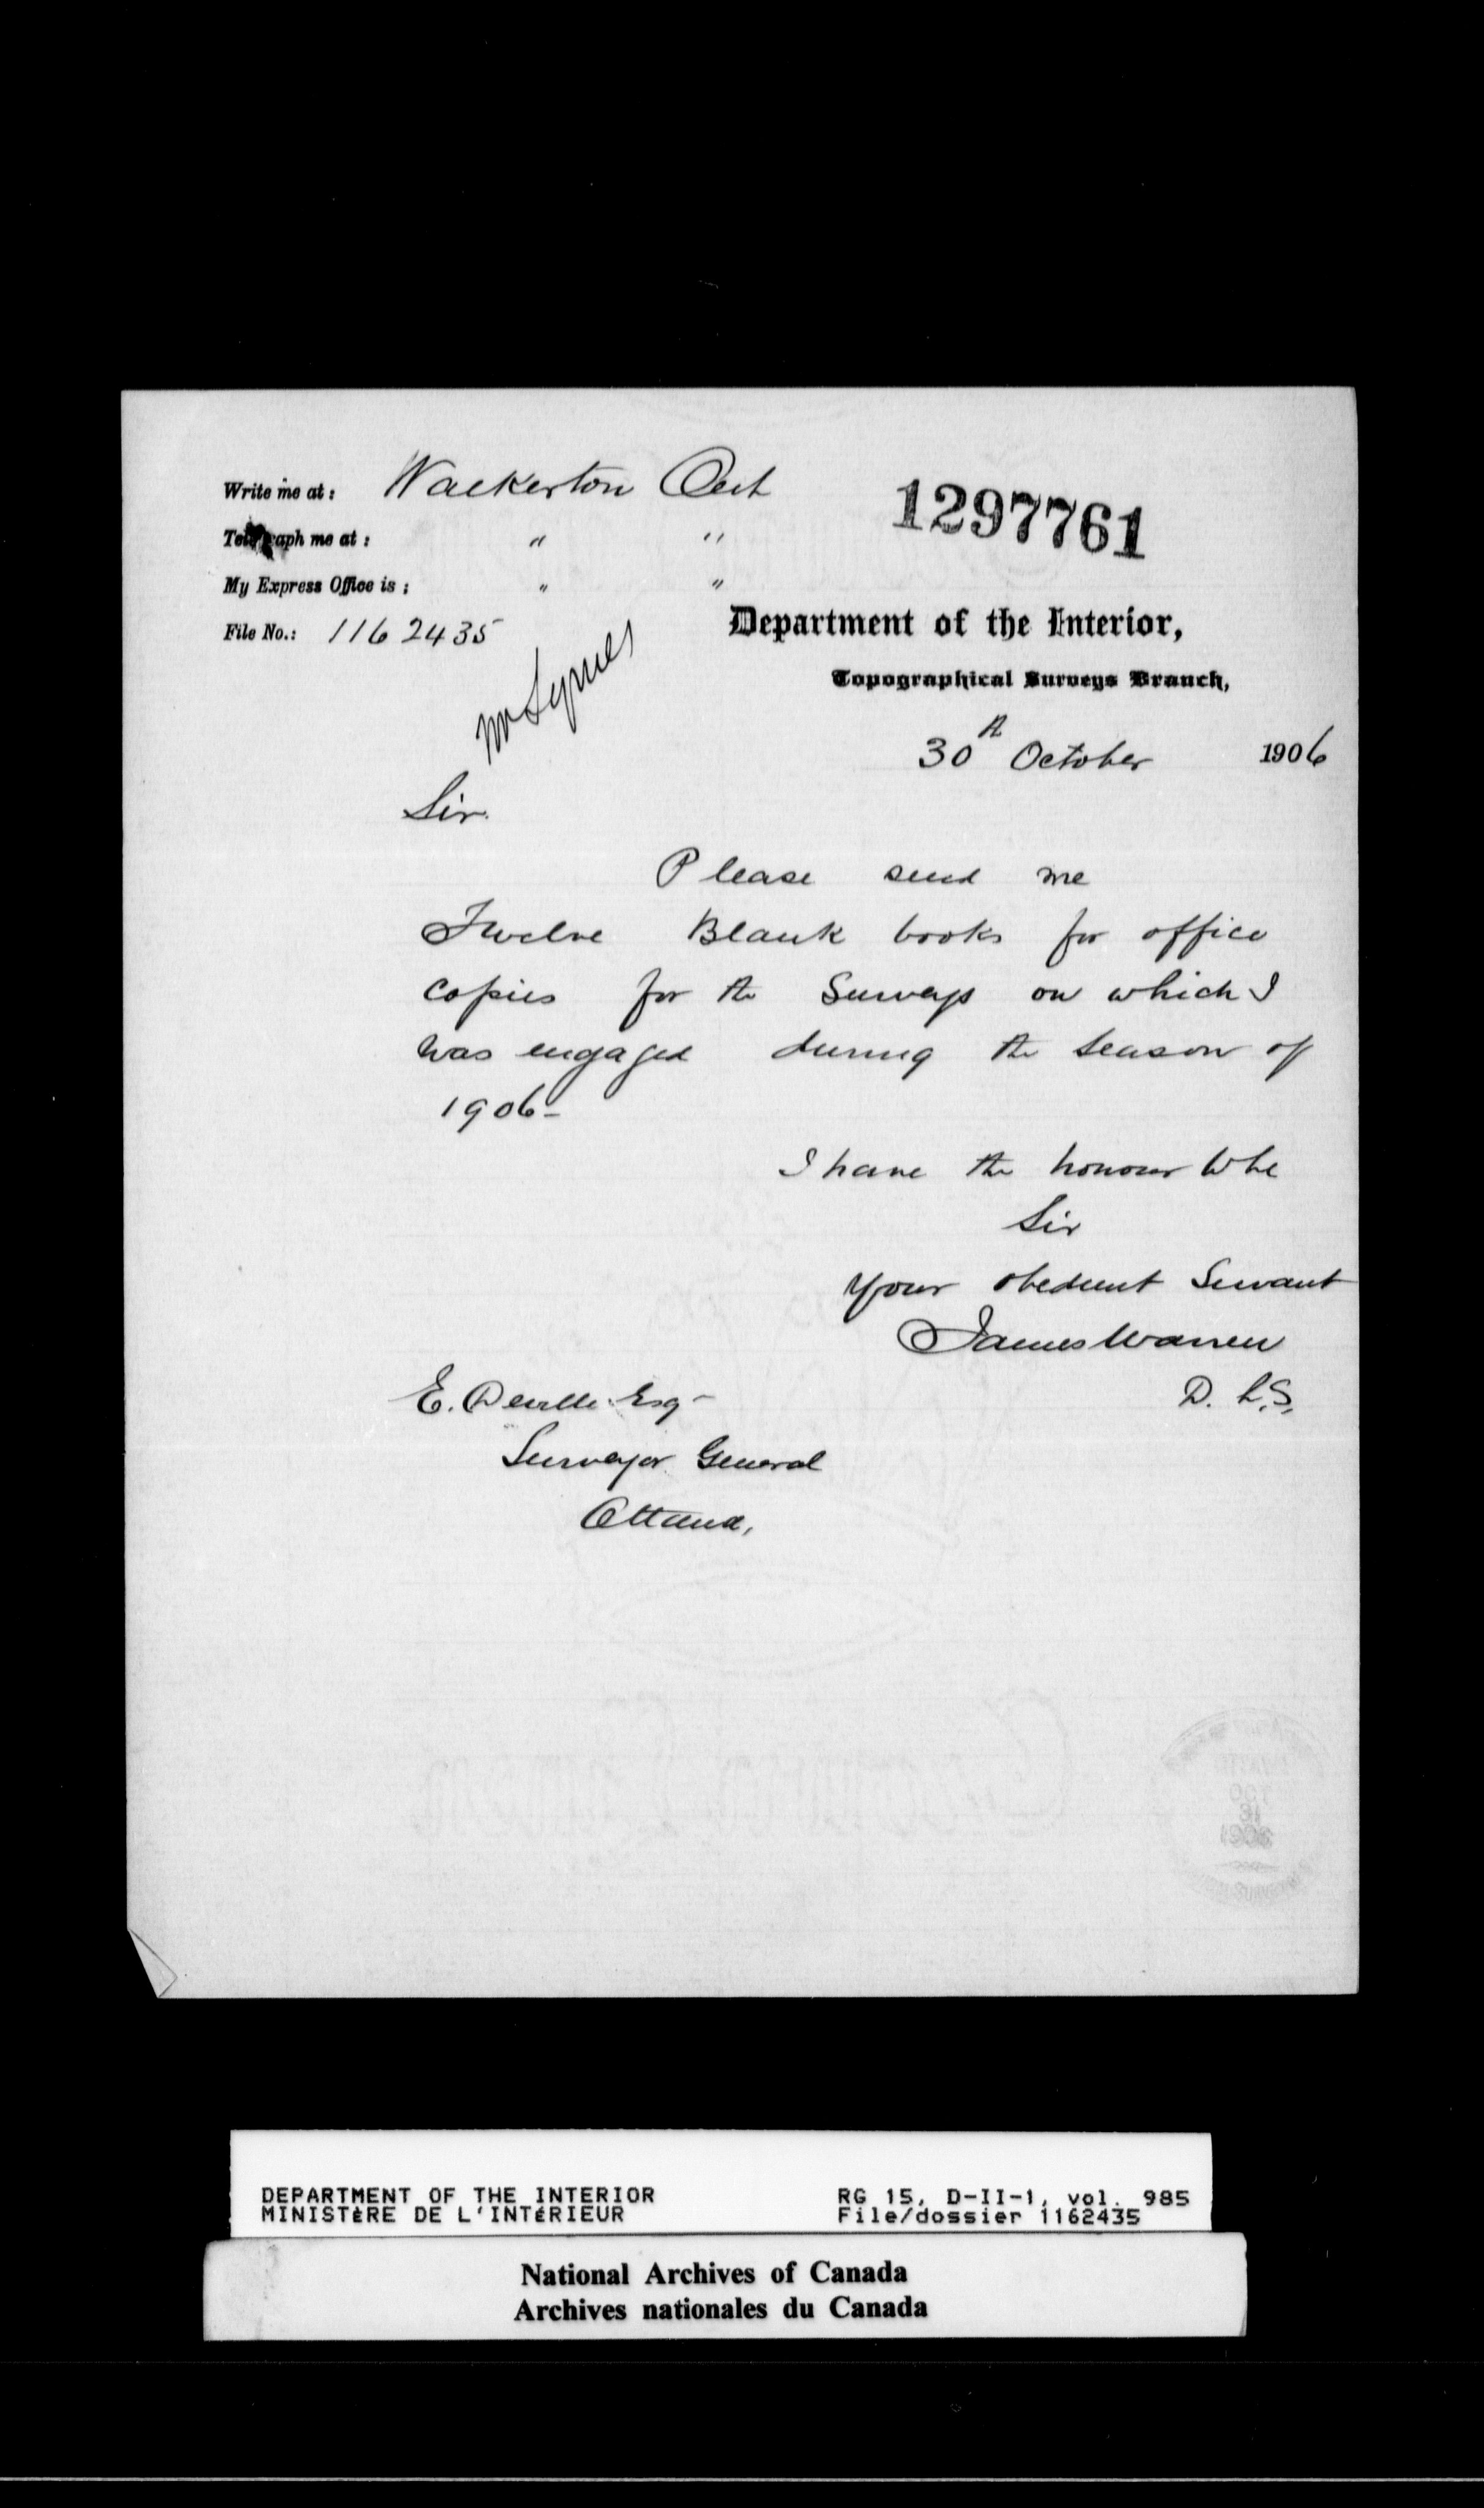 Write me at: Walkerton Ont
Telegraph me at: " "
My Express Office is: " "
File No.: 1162435
1297761
Department of the Interior,
Topographical Surveys Branch,
Mr Symes
30th October 1906
Sir.
Please send me
Twelve Blank books for office
copies for the Surveys on which I
was engaged during the season of
1906-
I have the honour to be
Sir
Your obedient Servant
James Warren
D. L. S.
E. Deville Esq-
Surveyor General
Ottawa,
DEPARTMENT OF THE INTERIOR
MINISTÈRE DE L'INTÉRIEUR
RG 15, D-II-1, vol. 985
File/dossier 1162435
National Archives of Canada
Archives nationales du Canada